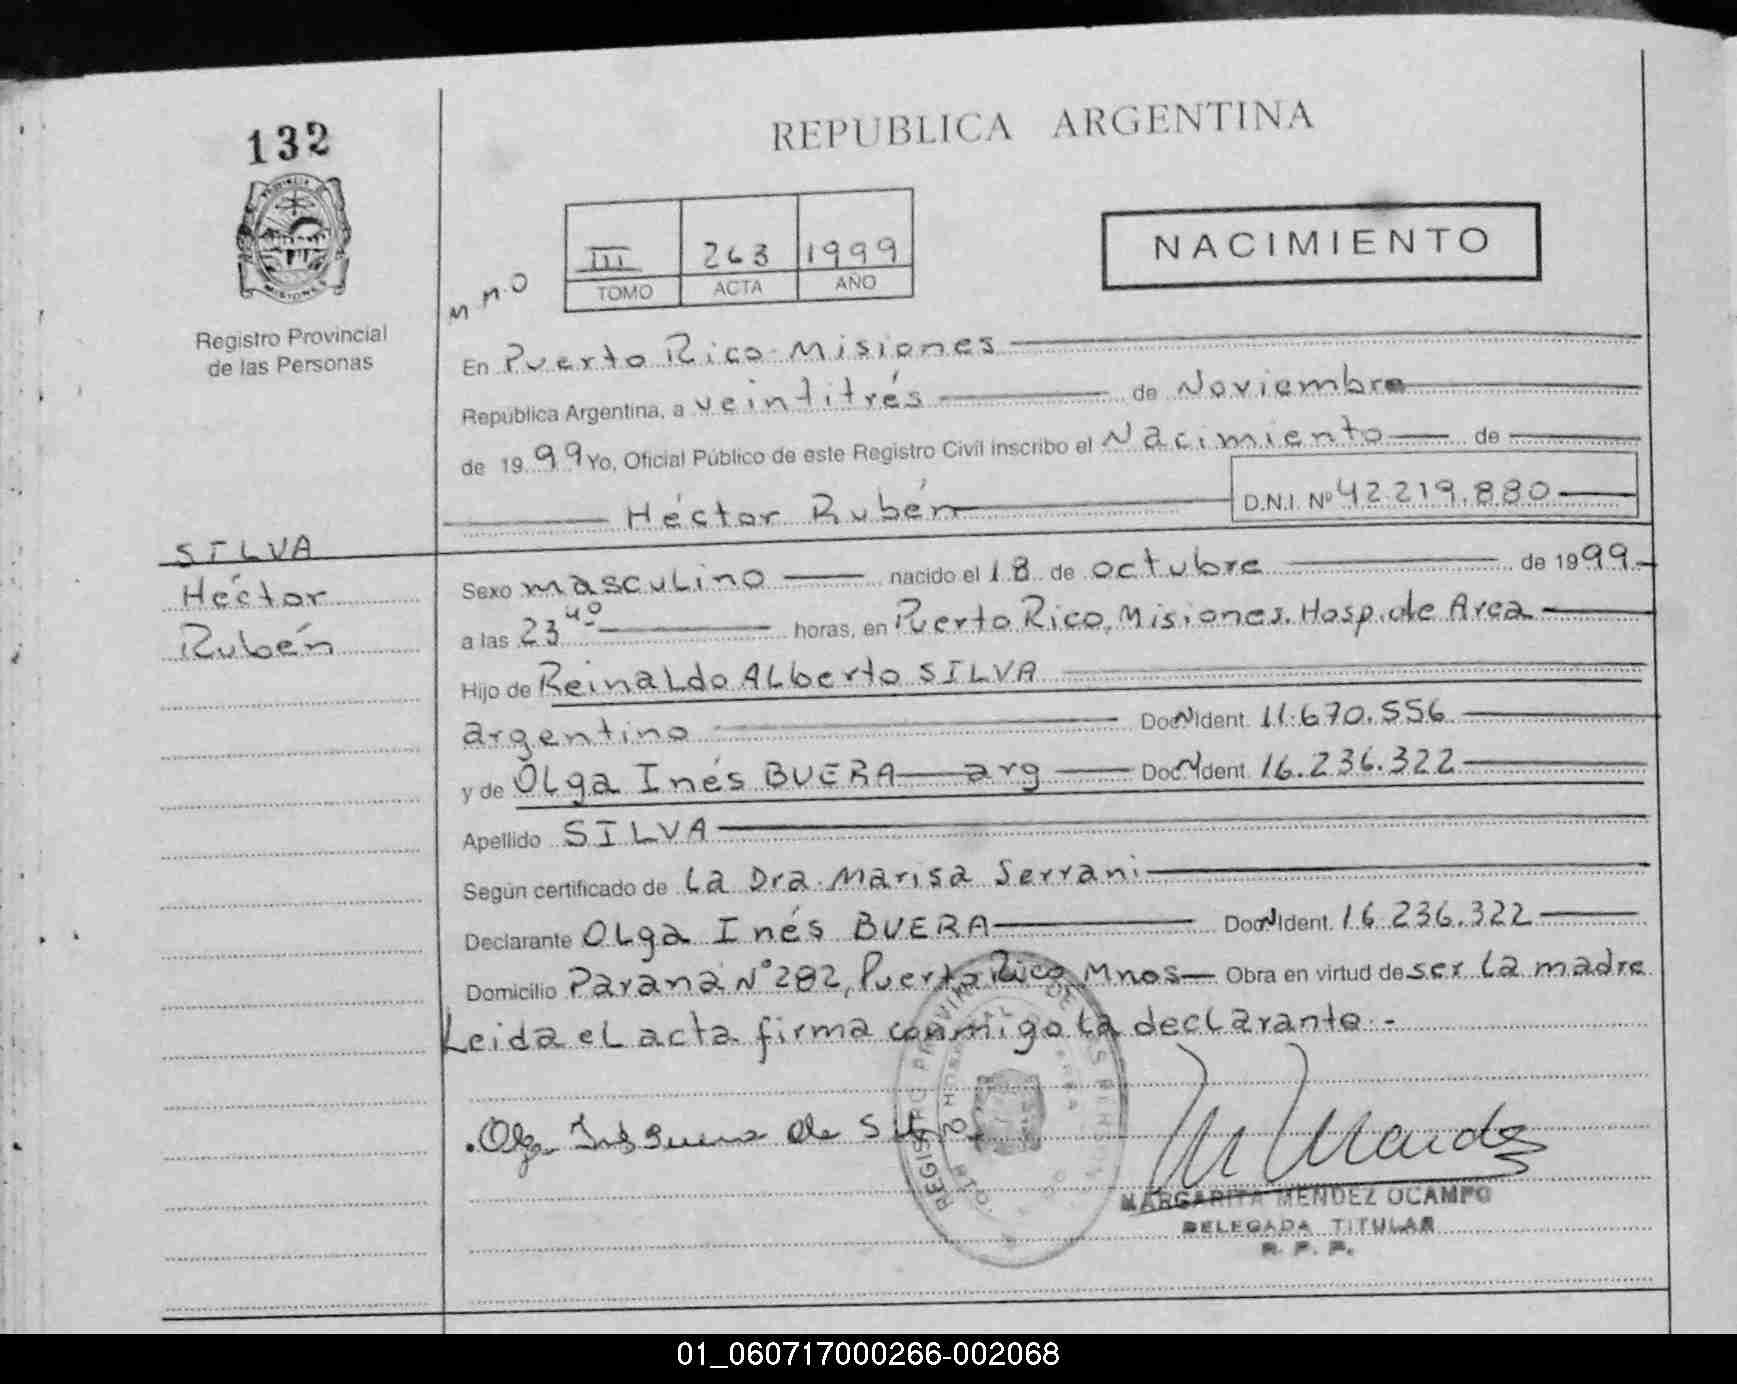 132
REPUBLICA ARGENTINA
PROVINCIA DE
MISIONES
Registro Provincial
de las Personas
III 263 1999
TOMO ACTA AÑO
NACIMIENTO
M M.O
En Puerto Rico-Misiones
República Argentina, a veintitrés de Noviembre
de 1999 Yo, Oficial Público de este Registro Civil inscribo el Nacimiento de
Héctor Rubén D.N.I. Nº 42.219.880
SILVA
Héctor
Rubén
Sexo masculino nacido el 18 de octubre de 1999.
a las 23 40 horas, en Puerto Rico, Misiones. Hosp. de Area
Hijo de Reinaldo Alberto SILVA
argentino Doc N Ident. 11.670.556
y de Olga Inés BUERA arg Doc N Ident. 16.236.322
Apellido SILVA
Según certificado de La Dra. Marisa Serrani
Declarante Olga Inés BUERA Doc N Ident. 16.236.322
Domicilio Paraná N° 282, Puerto Rico, Mnos Obra en virtud de ser la madre
Leida el acta firma conmigo la declarante.-
MARGARITA MENDEZ OCAMPO
DELEGADA TITULAR
R. P. P.
01_060717000266-002068